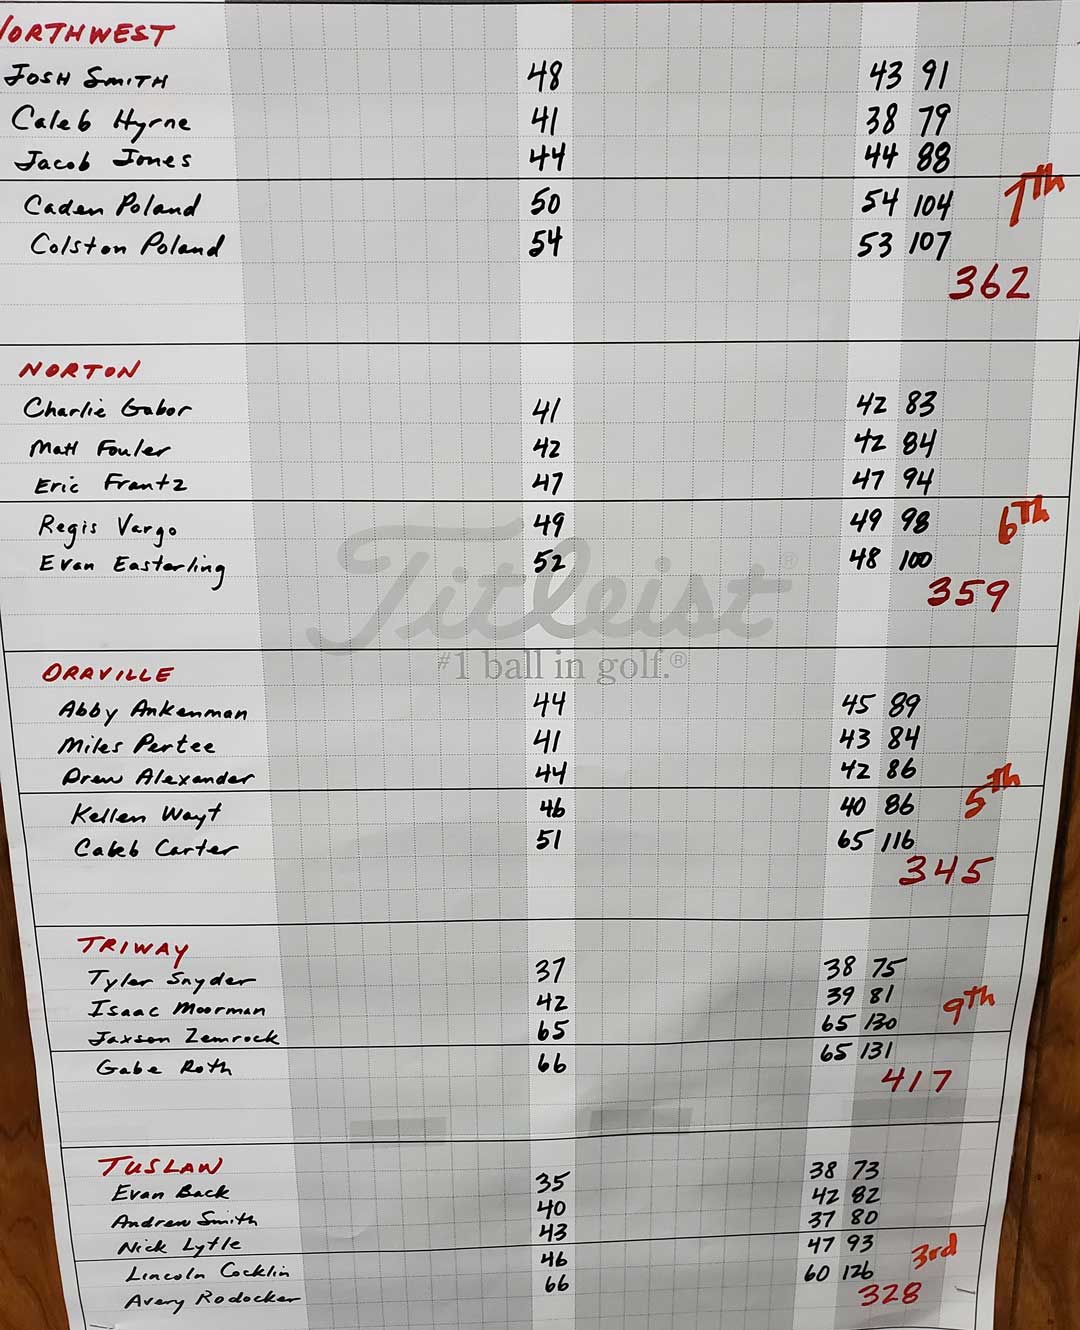 NORTHWEST
Josh Smith 48 43 91
Caleb Hyrne 41 38 79
Jacob Jones 44 44 88
7th
Caden Poland 50 54 104
Colston Poland 54 53 107
362
NORTON
Charlie Gabor 41 42 83
Matt Fouler 42 42 84
Eric Frantz 47 47 94
Regis Vargo 49 49 98
6th
Evan Easterling 52 48 100
359
Titleist®
#1 ball in golf.®
ORRVILLE
Abby Ankenman 44 45 89
Miles Pertee 41 43 84
Drew Alexander 44 42 86
Kellen Wayt 46 40 86
5th
Caleb Carter 51 65 116
345
TRIWAY
Tyler Snyder 37 38 75
Isaac Moorman 42 39 81
9th
Jaxson Zemrock 65 65 130
Gabe Roth 66 65 131
417
TUSLAW
Evan Back 35 38 73
Andrew Smith 40 42 82
Nick Lytle 43 37 80
Lincoln Cocklin 46 47 93
3rd
Avery Rodocker 66 60 126
328